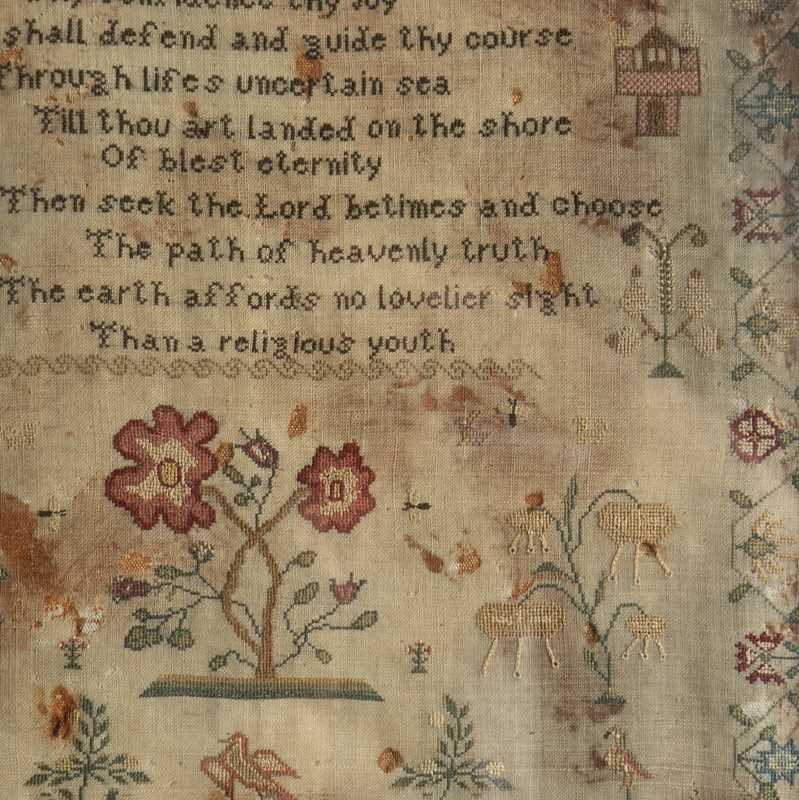 confidence thy joy
shall defend and guide thy course
Through lifes uncertain sea
Till thou art landed on the shore
Of blest eternity
Then seek the Lord betimes and choose
The path of heavenly truth
The earth affords no lovelier sight
Than a religious youth